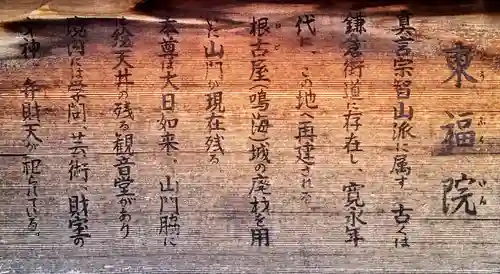 東福院
とうふくいん
真言宗智山派に属す 古くは
鎌倉街道に存在し、寛永年
代に、この地へ再建される
根古屋(鳴海)城の廃材を用
いた山門が現在残る
本尊は大日如来、山門脇に
天井の残る観音堂があり
境内には学問、芸術、財宝の
神 弁財天が祀られている。